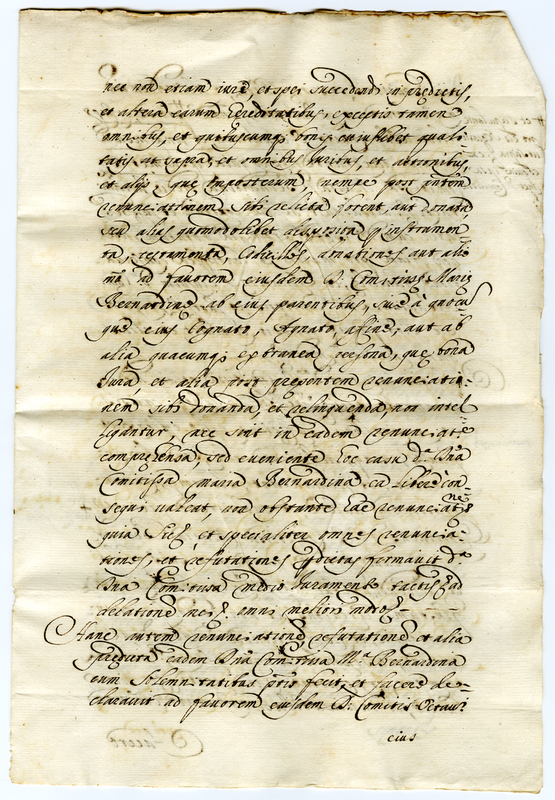 nec non etiam iure et spei succedendi in predictis,
et altera earum hereditatibus, exceptis tamen
omnibus, et quibuscumq; bonis cuiuslibet quali
tatis ut supra, et omnibus Iuribus, et actionibus,
et alijs, que imposterum, nempe post pntem
renunciationem sibi relicta forent, aut donata,
seu alias quomodolibet acquisita p instrumen
ta, testamenta, Codicillos, donationes aut alio
mo ad favorem eiusdem D. Comitisse Marie
Bernardine ab eius parentibus, sive à quocu
que eius Cognato, Agnato, affine, aut ab
alia quacumq; extranea persona, que bona
Iura et alia post presentem renunciatio
nem sibi donanda, et relinquenda, non intel
ligantur, nec sint in eadem renunciat.e
comprehensa, sed eveniente hoc casu d.a Dna
Comitissa Maria Bernardina ea libere con
sequi valeat, non obstante hac renunciatne
quia sic et specialiter omnes renuncia
tiones, et refutationes pdictas formavit d.a
Dna Comitissa medio Iuramento tactis ad
delationem mei omni meliori modo
Hanc autem renunciatione refutatione et alia
predicta eadem Dna Comitissa M.a Bernardina
cum solemnitatibus fecit, et facere de
claravit ad favorem eiusdem D. Comitis Octavij
eius